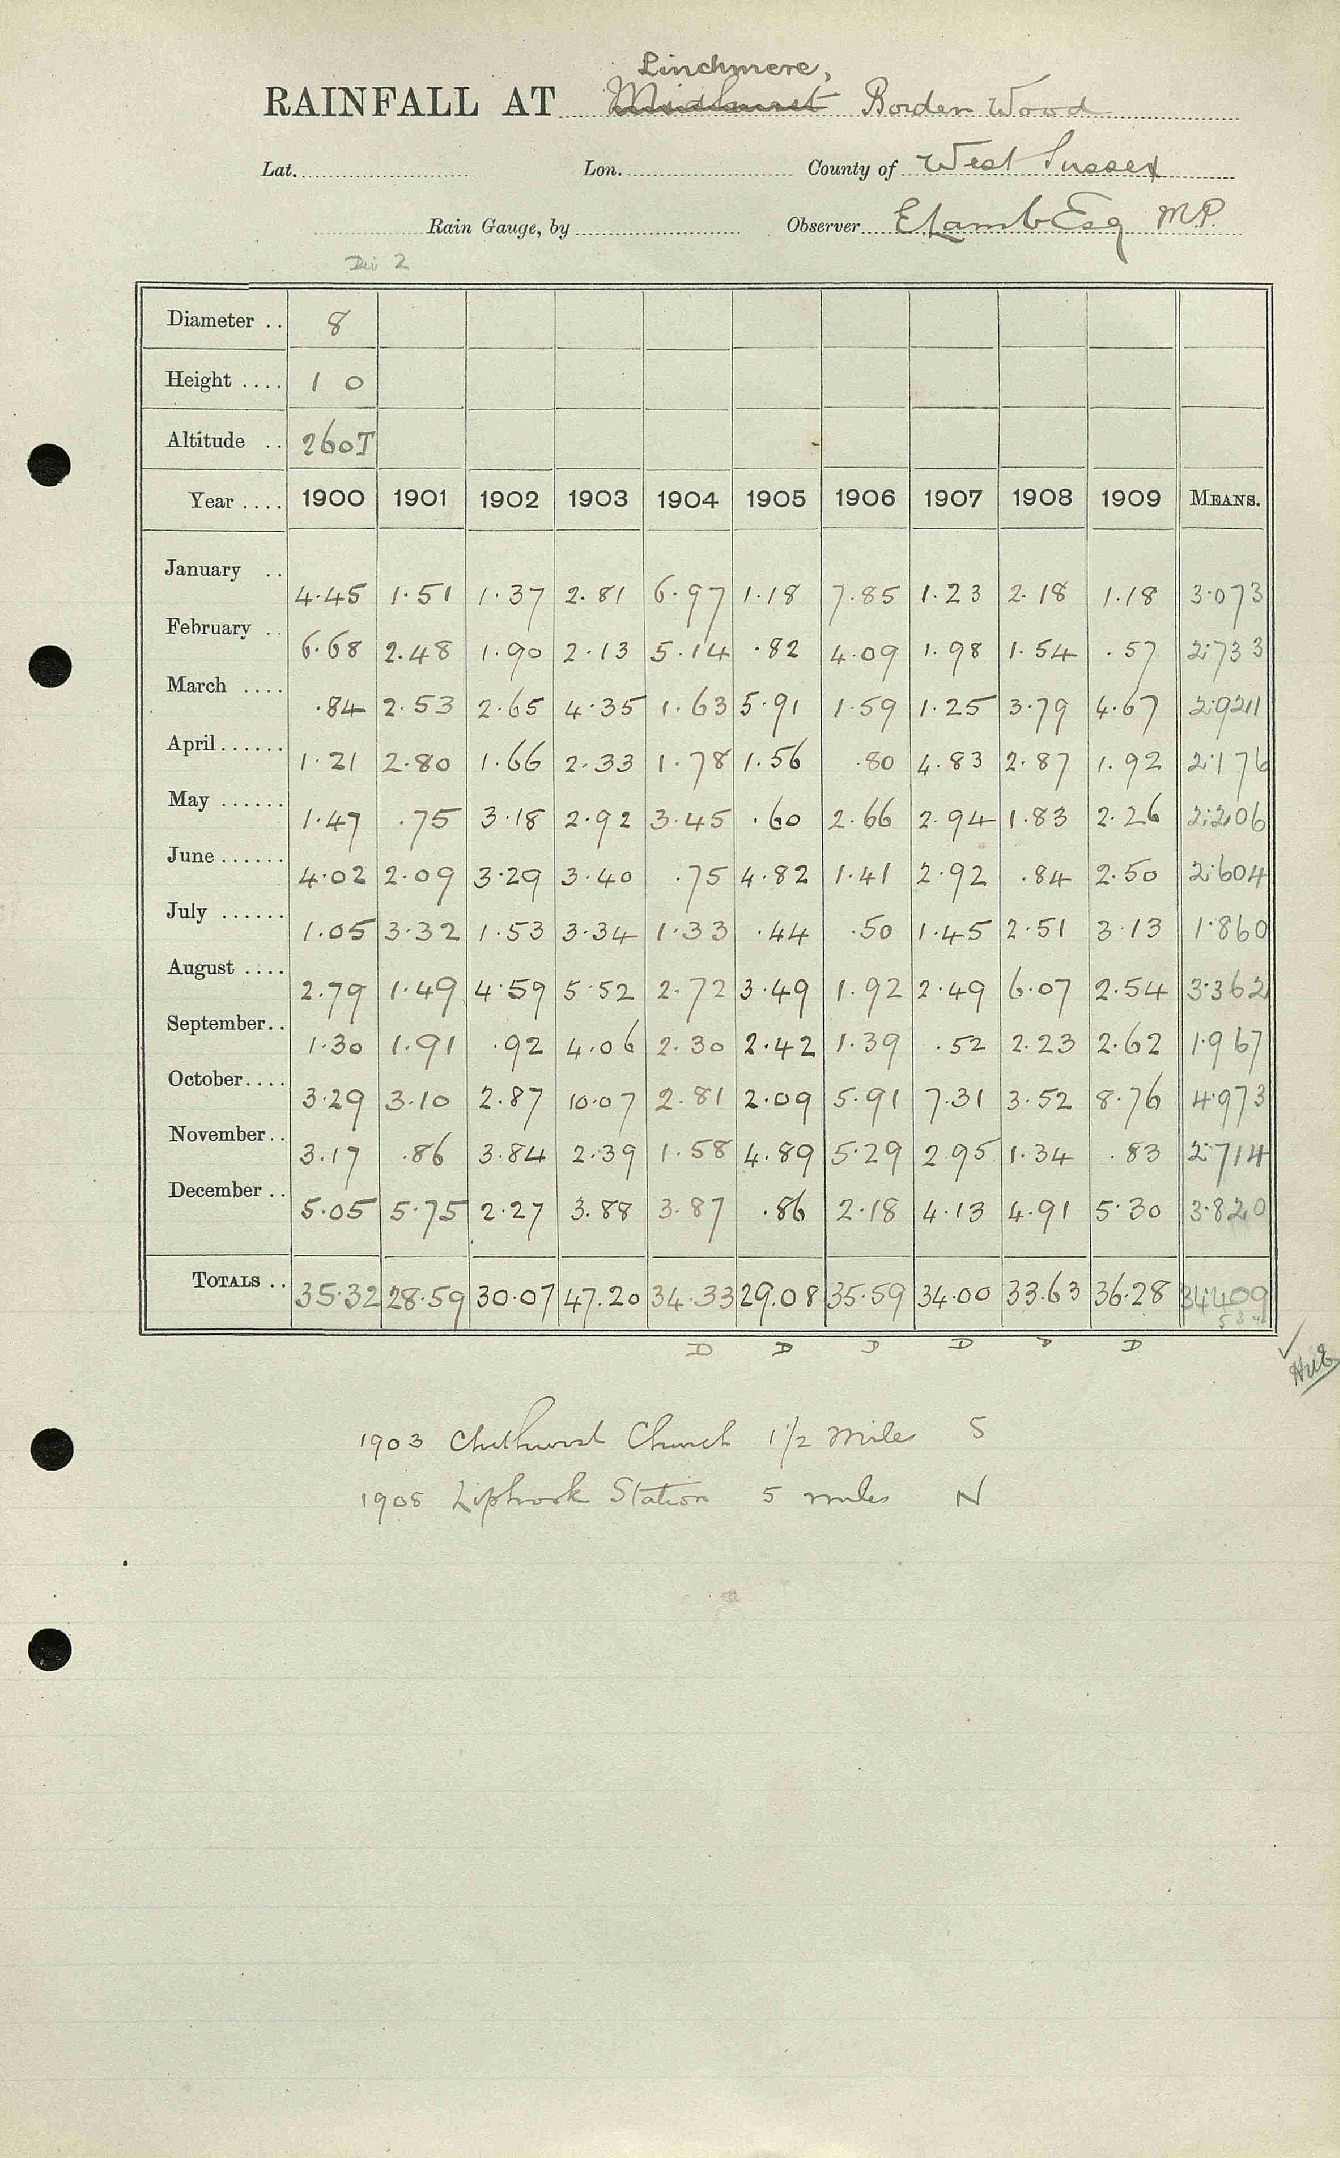 Linchmere,
RAINFALL AT Midhurst Borden Wood
Lat. Lon. County of West Sussex
Rain Gauge, by Observer E Lamb Esq M.P.
Diameter .. 8
Height .... 1 0
Altitude .. 260T
Year .... 1900 1901 1902 1903 1904 1905 1906 1907 1908 1909 MEANS.
January .. 4.45 1.51 1.37 2.81 6.97 1.18 7.85 1.23 2.18 1.18 3.073
February .. 6.68 2.48 1.90 2.13 5.14 .82 4.09 1.98 1.54 .57 2.733
March .... .84 2.53 2.65 4.35 1.63 5.91 1.59 1.25 3.79 4.67 2.921
April...... 1.21 2.80 1.66 2.33 1.78 1.56 .80 4.83 2.87 1.92 2.176
May ...... 1.47 .75 3.18 2.92 3.45 .60 2.66 2.94 1.83 2.26 2.206
June ...... 4.02 2.09 3.29 3.40 .75 4.82 1.41 2.92 .84 2.50 2.604
July ...... 1.05 3.32 1.53 3.34 1.33 .44 .50 1.45 2.51 3.13 1.860
August .... 2.79 1.49 4.59 5.52 2.72 3.49 1.92 2.49 6.07 2.54 3.362
September.. 1.30 1.91 .92 4.06 2.30 2.42 1.39 .52 2.23 2.62 1.967
October.... 3.29 3.10 2.87 10.07 2.81 2.09 5.91 7.31 3.52 8.76 4.973
November.. 3.17 .86 3.84 2.39 1.58 4.89 5.29 2.95 1.34 .83 2.714
December .. 5.05 5.75 2.27 3.88 3.87 .86 2.18 4.13 4.91 5.30 3.820
TOTALS .. 35.32 28.59 30.07 47.20 34.33 29.08 35.59 34.00 33.63 36.28 34.409
D D D D D D
1903 Chithurst Church 1 1/2 mile S
1908 Liphook Station 5 miles N